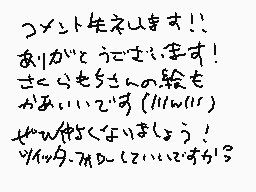 コメント失礼します!!
ありがとうございます!
さくらもちさんの絵も
かあいいです(///w///)
ぜひ仲よくなりましょう!
ツイッターフォローしていいですか?